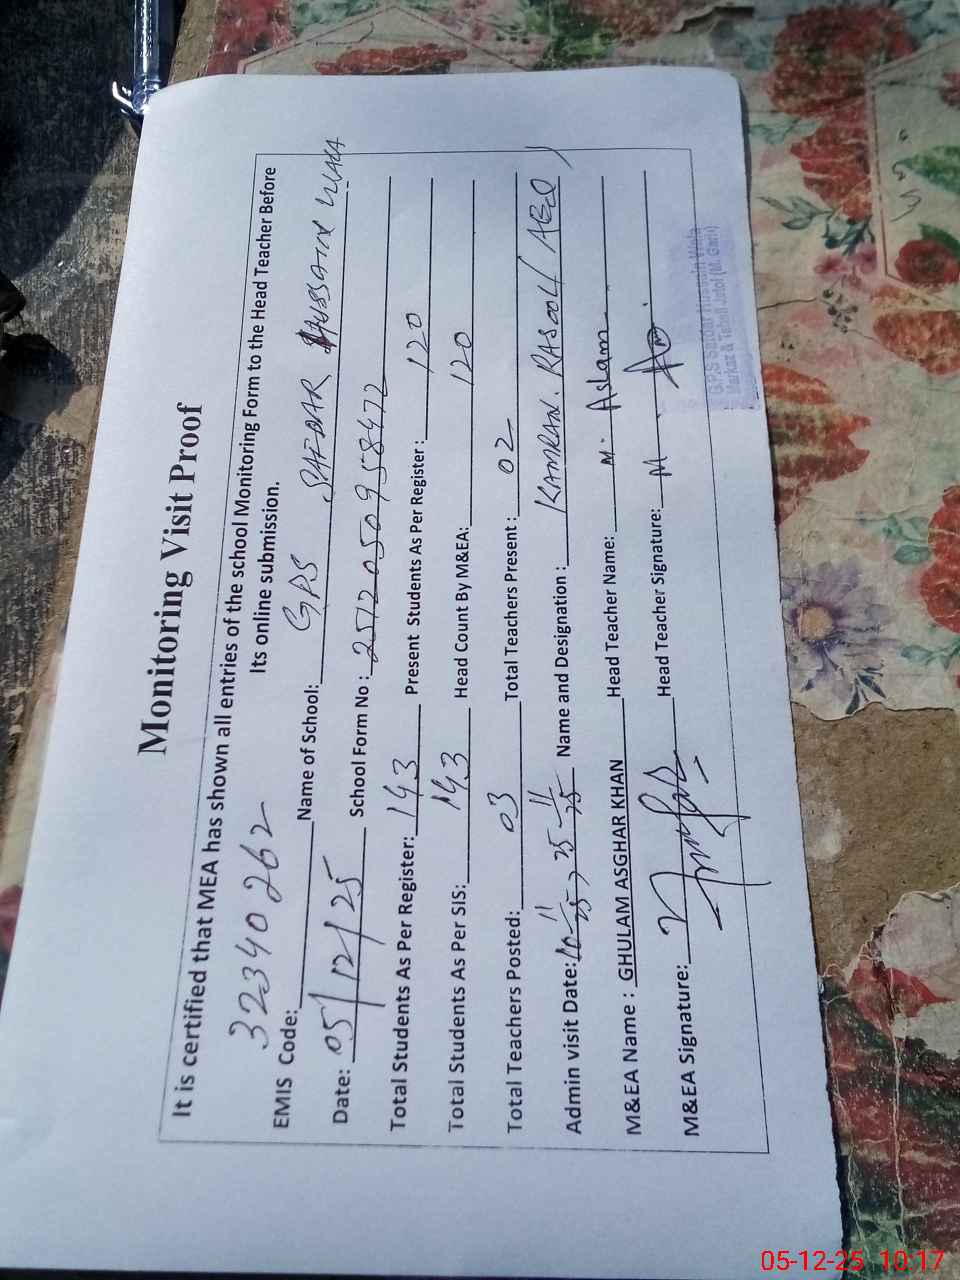 Monitoring Visit Proof
It is certified that MEA has shown all entries of the school Monitoring Form to the Head Teacher Before
Its online submission.
EMIS Code: 32340262 Name of School: GPS SAFDAR HUSSAIN WALA
Date: 05/12/25 School Form No : 2512050958472
Total Students As Per Register: 143 Present Students As Per Register : 120
Total Students As Per SIS: 143 Head Count By M&EA: 120
Total Teachers Posted: 03 Total Teachers Present : 02
Admin visit Date: 10-11-25, 25-11-25 Name and Designation : KAMRAN. RASOOL (AEO)
M&EA Name : GHULAM ASGHAR KHAN Head Teacher Name: M. Aslam
M&EA Signature: Head Teacher Signature: M
G.P.S Safdar Hussain Wala
Markaz & Tehsil Jatoi (M. Garh)
05-12-25 10:17